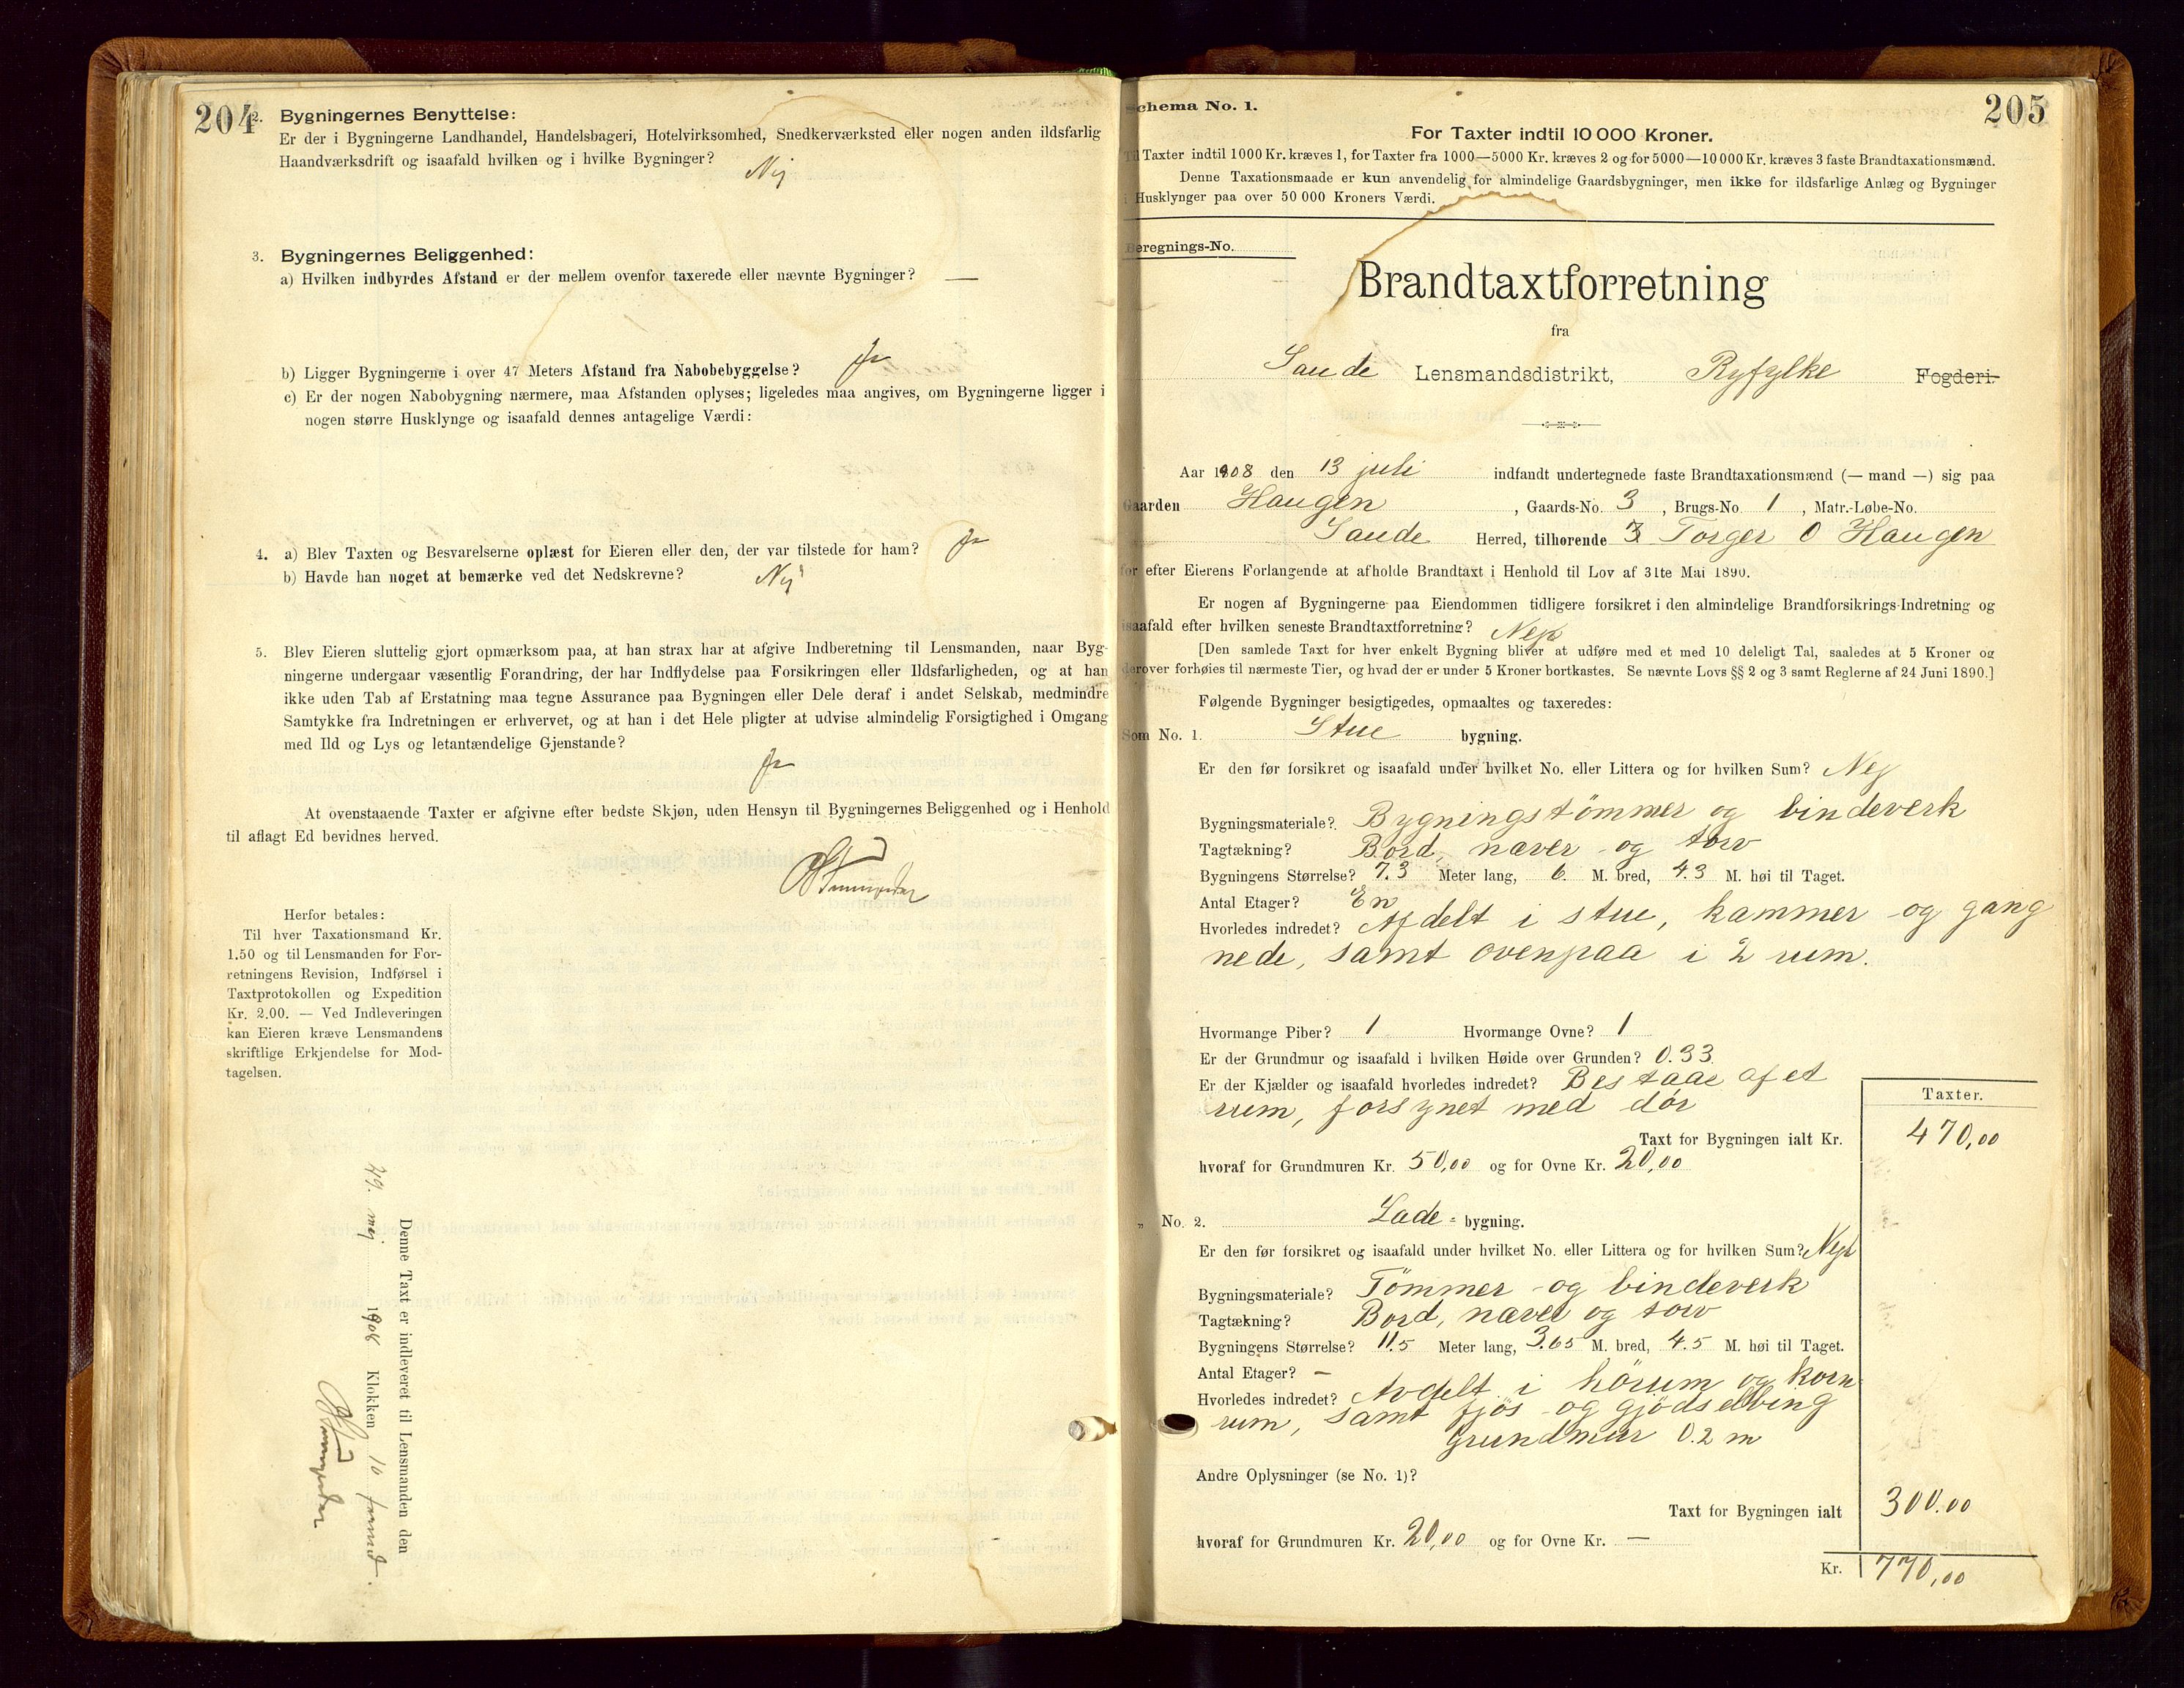 204
2. Bygningernes Benyttelse:
Er der i Bygningerne Landhandel, Handelsbageri, Hotelvirksomhed, Snedkerværksted eller nogen anden ildsfarlig
Haandværksdrift og isaafald hvilken og i hvilke Bygninger? Nej
3. Bygningernes Beliggenhed:
a) Hvilken indbyrdes Afstand er der mellem ovenfor taxerede eller nævnte Bygninger? —
b) Ligger Bygningerne i over 47 Meters Afstand fra Nabobebyggelse? Ja
c) Er der nogen Nabobygning nærmere, maa Afstanden oplyses; ligeledes maa angives, om Bygningerne ligger i
nogen større Husklynge og isaafald dennes antagelige Værdi:
4. a) Blev Taxten og Besvarelserne oplæst for Eieren eller den, der var tilstede for ham? Ja
b) Havde han noget at bemærke ved det Nedskrevne? Nej
5. Blev Eieren sluttelig gjort opmærksom paa, at han strax har at afgive Indberetning til Lensmanden, naar Byg-
ningerne undergaar væsentlig Forandring, der har Indflydelse paa Forsikringen eller Ildsfarligheden, og at han
ikke uden Tab af Erstatning maa tegne Assurance paa Bygningen eller Dele deraf i andet Selskab, medmindre
Samtykke fra Indretningen er erhvervet, og at han i det Hele pligter at udvise almindelig Forsigtighed i Omgang
med Ild og Lys og letantændelige Gjenstande?
Ja
At ovenstaaende Taxter er afgivne efter bedste Skjøn, uden Hensyn til Bygningernes Beliggenhed og i Henhold
til aflagt Ed bevidnes herved.
Herfor betales:
Til hver Taxationsmand Kr.
1.50 og til Lensmanden for For-
retningens Revision, Indførsel i
Taxtprotokollen og Expedition
Kr. 2.00. — Ved Indleveringen
kan Eieren kræve Lensmandens
skriftlige Erkjendelse for Mod-
tagelsen.
Denne Taxt er indleveret til Lensmanden den
29. mej 1908 Klokken 10 formd.
205
Schema No. 1.
For Taxter indtil 10 000 Kroner.
Til Taxter indtil 1000 Kr. kræves 1, for Taxter fra 1000—5000 Kr. kræves 2 og for 5000—10000 Kr. kræves 3 faste Brandtaxationsmænd.
Denne Taxationsmaade er kun anvendelig for almindelige Gaardsbygninger, men ikke for ildsfarlige Anlæg og Bygninger
i Husklynger paa over 50 000 Kroners Værdi.
Beregnings-No.
Brandtaxtforretning
fra
Saude Lensmandsdistrikt, Ryfylke Fogderi.
Aar 1908 den 13 juli indfandt undertegnede faste Brandtaxationsmænd (— mand —) sig paa
Gaarden Haugen, Gaards-No. 3, Brugs-No. 1, Matr.-Løbe-No.
Saude Herred, tilhørende Torger O Haugen
for efter Eierens Forlangende at afholde Brandtaxt i Henhold til Lov af 31te Mai 1890.
Er nogen af Bygningerne paa Eiendommen tidligere forsikret i den almindelige Brandforsikrings-Indretning og
isaafald efter hvilken seneste Brandtaxtforretning? Nej
[Den samlede Taxt for hver enkelt Bygning bliver at udføre med et med 10 deleligt Tal, saaledes at 5 Kroner og
derover forhøies til nærmeste Tier, og hvad der er under 5 Kroner bortkastes. Se nævnte Lovs §§ 2 og 3 samt Reglerne af 24 Juni 1890.]
Følgende Bygninger besigtigedes, opmaaltes og taxeredes:
Som No. 1. Stue bygning.
Er den før forsikret og isaafald under hvilket No. eller Littera og for hvilken Sum? Nej
Bygningsmateriale? Bygningstömmer og bindeverk
Tagtækning? Bord, næver og torv
Bygningens Størrelse? 7.3 Meter lang, 6. M. bred, 4.3 M. høi til Taget.
Antal Etager? En
Hvorledes indredet? Afdelt i stue, kammer og gang
nede, samt ovenpaa i 2 rum.
Hvormange Piber? 1 Hvormange Ovne? 1
Er der Grundmur og isaafald i hvilken Høide over Grunden? 0.33
Er der Kjælder og isaafald hvorledes indredet? Bestaae af et
rum, forsynet med dör
Taxter.
Taxt for Bygningen ialt Kr. 470,00
hvoraf for Grundmuren Kr. 50,00 og for Ovne Kr. 20,00
„ No. 2. Lade- bygning.
Er den før forsikret og isaafald under hvilket No. eller Littera og for hvilken Sum? Nej
Bygningsmateriale? Tömmer og bindeverk
Tagtækning? Bord, næver og torv
Bygningens Størrelse? 11.5 Meter lang, 3.65 M. bred, 4.5 M. høi til Taget.
Antal Etager? —
Hvorledes indredet? Avdelt i hörum og korn-
rum, samt fjös og gjödselbing
Grundmur 0.2 m
Andre Oplysninger (se No. 1)?
Taxt for Bygningen ialt 300.00
hvoraf for Grundmuren Kr. 20,00 og for Ovne Kr. —
Kr. 770,00